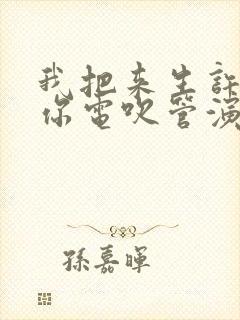 我把来生
你電吹管演
孫嘉暉